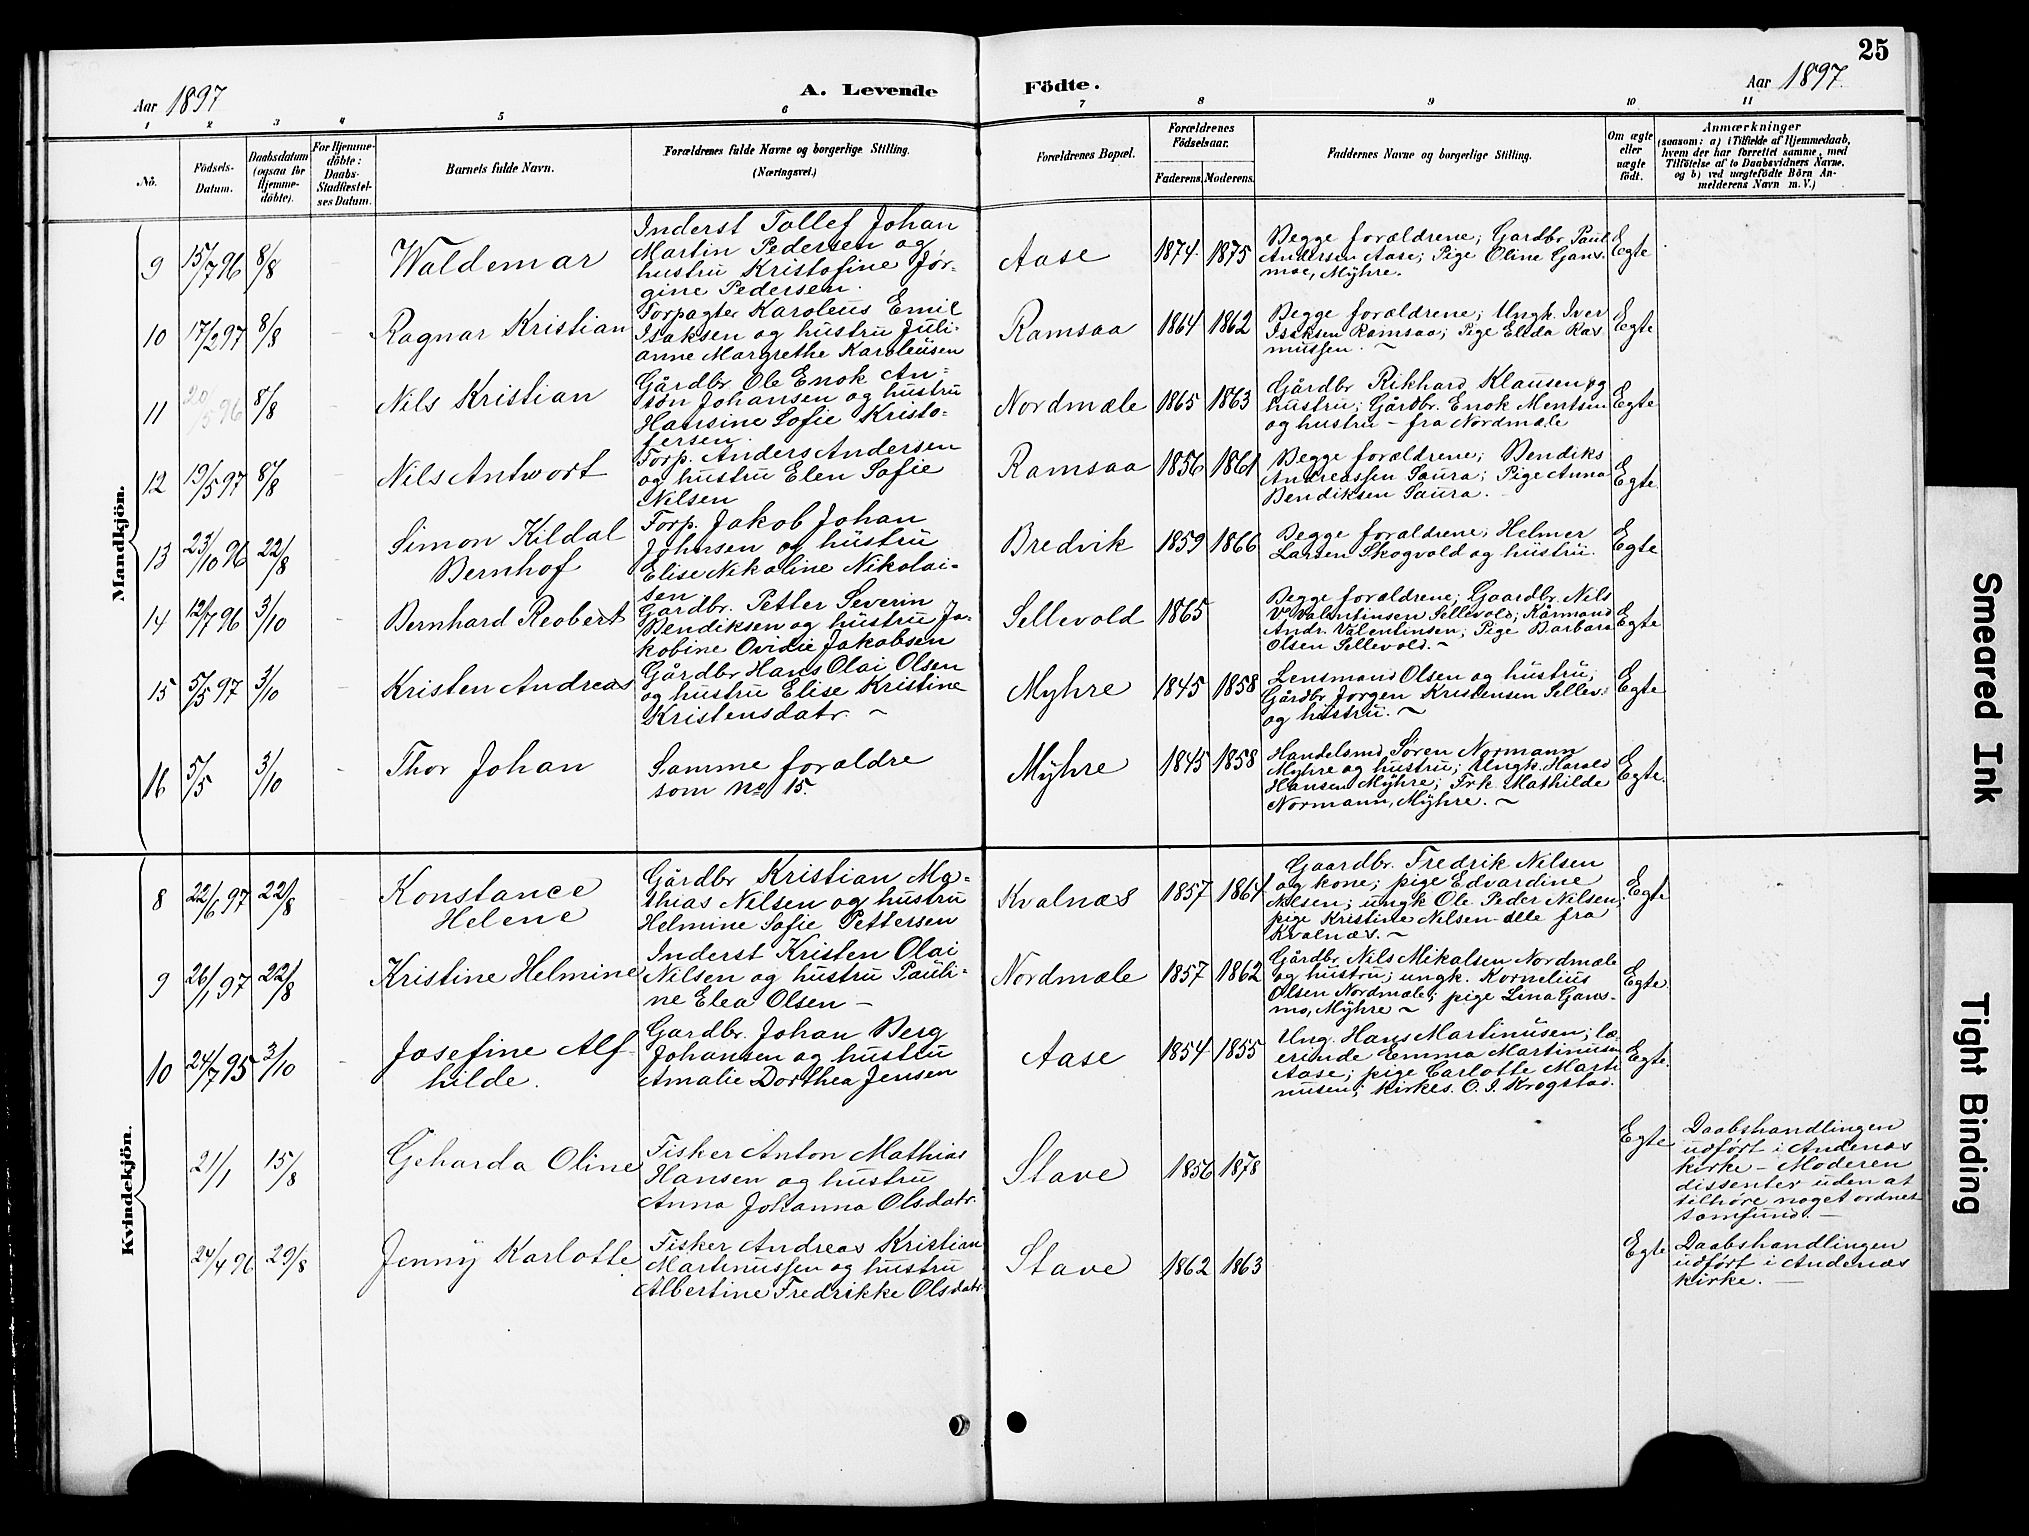 25
Aar 1897
A. Levende
Födte.
Aar 1897.
1 2 3 4 5 6 7 8 9 10 11
No.
Födsels-
Datum.
Daabsdatum
(ogsaa for
Hjemme-
döbte).
For Hjemme-
döbte:
Daabs-
Stadfæstel-
ses Datum.
Barnets fulde Navn.
Forældrenes fulde Navne og borgerlige Stilling.
(Næringsvei.)
Forældrenes Bopæl.
Forældrenes
Födselsaar.
Faderens. Moderens.
Faddernes Navne og borgerlige Stilling.
Om ægte
eller
uægte
födt.
Anmærkninger
(saasom: a) i Tilfælde af Hjemmedaab,
hvem der har forrettet samme, med
Tilföielse af to Daabsvidners Navne,
og b) ved uægtefödte Börn An-
melderens Navn m. V.)
Mandkjön.
9 15/7 96 8/8
Waldemar
Inderst Tollef Johan
Martin Pedersen og
hustru Kristofine Jør-
gine Pedersen.
Aase 1874. 1875
Begge forældrene; Gardbr. Paul
Andersen Aase; Pige Oline Gans-
moe, Myhre.
Egte
10 17/2 97 8/8
Ragnar Kristian
Forpagter Karoleus Emil
Isaksen og hustru Juli-
anne Margrethe Karoleusen
Ramsaa 1864 1862
Begge forældrene; Ungk. Iver
Isaksen Ramsaa; Pige Ellda Ras
mussen. ~
Egte
11 20/5 96 8/8
Nils Kristian
Gårdbr. Ole Enok An-
ton Johansen og hustru
Hansine Sofie Kristo-
fersen.
Nordmæle 1865 1863
Gårdbr Rikhard Klausen og
hustru; Gårdbr. Enok Mentsen
og hustru - fra Nordmæle
Egte
12 19/5 97 8/8
Nils Antwort
Forp. Anders Andersen
og hustru Elen Sofie
Nilsen
Ramsaa 1856 1861
Begge forældrene; Bendiks
Andreassen Saura; Pige Anna
Bendiksen Saura.
Egte.
13 23/10 96 22/8
Simon Kildal
Bernhof
Forp. Jakob Johan
Johnsen og hustru
Elise Nikoline Nikolai-
sen
Bredvik 1859 1866
Begge forældrene; Helmer
Larsen Skogvold og hustru.
Egte
14 12/7 96 3/10
Bernhard Reobert
Gårdbr. Petter Severin
Bendiksen og hustru Ja-
kobine Ovidie Jakobsen
Sellevold 1865
Begge forældrene; Gaardbr. Nils
V. Valentinsen Sellevold; Kårmand
Andr. Valentinsen; Pige Barbara
Olsen Sellevold. ~
Egte
15 5/5 97 3/10
Kristen Andreas
Gårdbr Hans Olai Olsen
og hustru Elise Kristine
Kristensdatr. ~
Myhre 1845 1858
Lensmand Olsen og hustru;
Gårdbr Jørgen Kristensen Sellev:
og hustru. ~
Egte
16 5/5 3/10
Thor Johan
Samme forældre
som No 15.
Myhre 1845 1858
Handelsmd. Søren Normann
Myhre og hustru; Ungk. Harald
Hansen Myhre; Frk. Mathilde
Normann, Myhre. ~
Egte.
Kvindekjön.
8 22/6 97 22/8
Konstance
Helene
Gårdbr Kristian Ma-
thias Nilsen og hustru
Helmine Sofie Pettersen
Kvalnæs 1857 1864
Gaardbr. Fredrik Nilsen
og kone; pige Edvardine
Nilsen; ungk Ole Peder Nilsen;
pige Kristine Nilsen - alle fra
Kvalnæs. ~
Egte
9 26/1 97 22/8
Kristine Helmine
Inderst Kristen Olai
Nilsen og hustru Pauli-
ne Elea Olsen -
Nordmæle 1857 1862
Gårdbr Nils Mikalsen Nordmæle
og hustru; ungk. Kornelius
Olsen Nordmæle; pige Lina Gans-
mo, Myhre ~
Egte.
10 24/7 95 3/10
Josefine Alf-
hilde.
Gardbr. Johan Berg
Johansen og hustru
Amalie Dorthea Jensen
Aase 1854 1855
Ung. Hans Martinusen; læ-
rerinde Emma Martinusen
Aase; pige Carlotte Marti
nusen; kirkes. O. J. Krogstad.
Egte.
21/1 15/8
Geharda Oline
Fisker Anton Mathias
Hansen og hustru
Anna Johanna Olsdatr.
Stave 1856 1878
Egte
Daabshandlingen
udført i Andenæs
kirke - Moderen
dissenter uden at
tilhøre noget ordnet
samfund. -
24/4 96 29/8
Jenny Karlotte
Fisker Andreas Kristian
Martinussen og hustru
Albertine Fredrikke Olsdatr.
Stave 1862 1863
Egte
Daabshandlingen
udført i Andenæs
kirke. -
Smeared Ink
Tight Binding